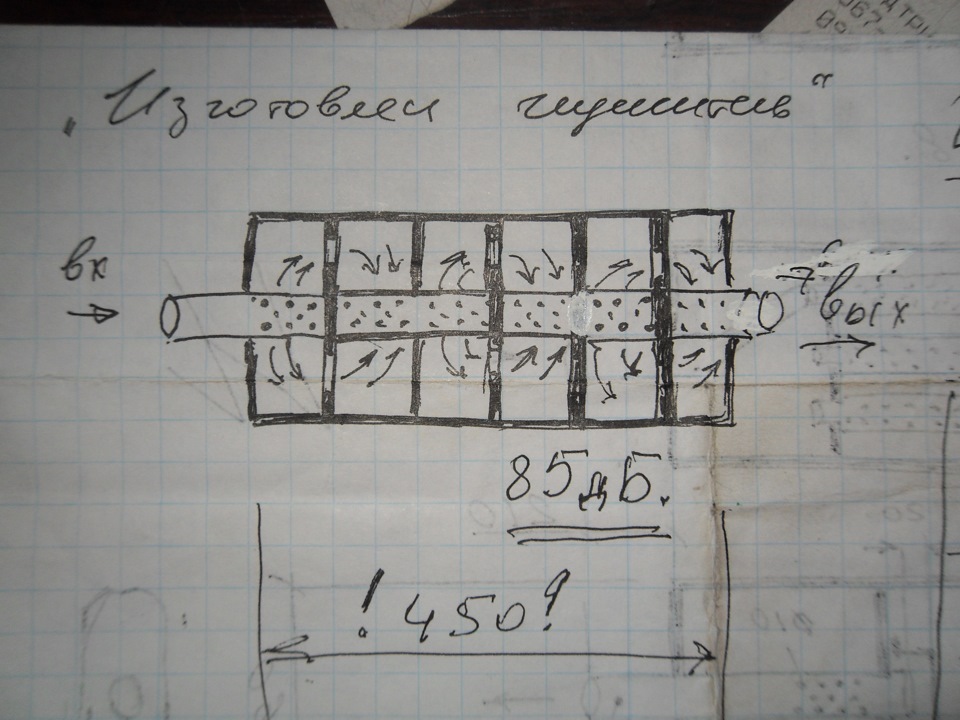 „Изготовлен глушитель“
вх
вых
85 дБ.
! 450 !